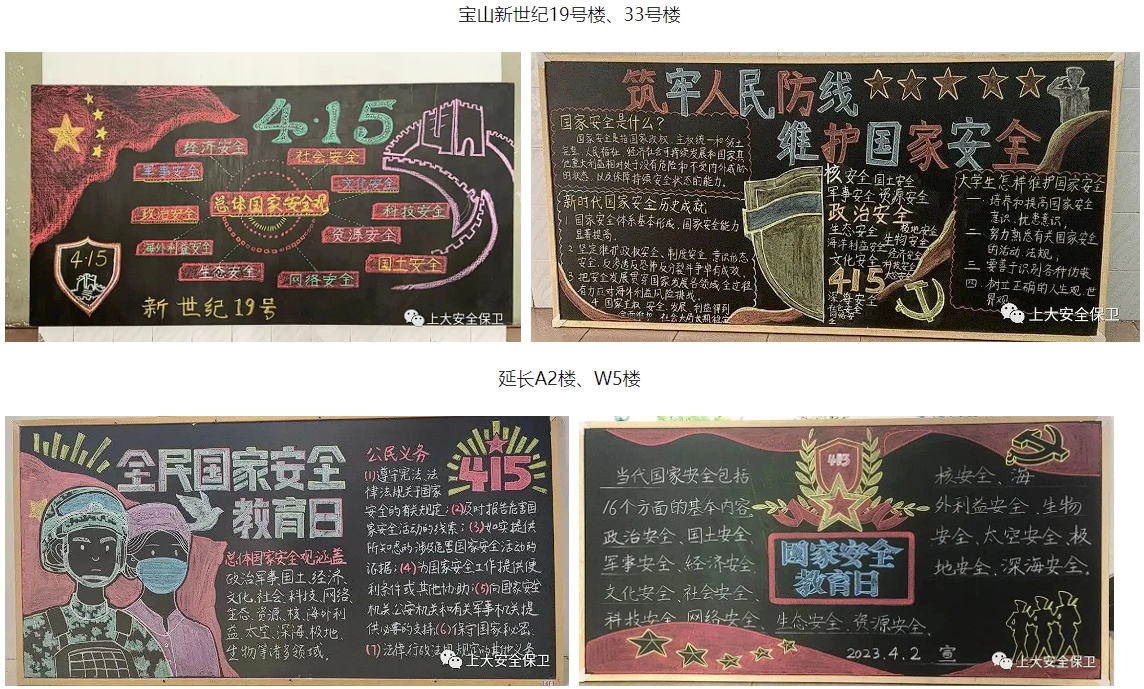 宝山新世纪19号楼、33号楼
4·15
经济安全
社会安全
军事安全
文化安全
总体国家安全观
政治安全
科技安全
海外利益安全
资源安全
生态安全
国土安全
网络安全
4·15
新世纪19号
上大安全保卫
筑牢人民防线
维护国家安全
国家安全是什么?
国家安全是指国家政权、主权、统一和领土
完整、人民福祉、经济社会可持续发展和国家其
他重大利益相对处于没有危险和不受内外威胁
的状态,以及保障持续安全状态的能力。
新时代国家安全历史成就
1. 国家安全体系基本形成,国家安全能力
显著提高.
2. 坚定维护政权安全、制度安全、意识形态
安全,反渗透反恐怖反分裂斗争卓有成效.
3. 把安全发展贯穿国家发展各领域全过程
有力应对海外利益风险挑战.
4. 国家主权、安全、发展、利益得到
全面维护,社会大局长期稳定
核安全 国土安全
军事安全 资源安全
政治安全
生态安全 极地安全
海洋利益安全 生物安全
文化安全 科技安全
经济安全
415
深海安全
大学生怎样维护国家安全
一. 培养和提高国家安全
意识、忧患意识.
二. 努力熟悉有关国家安全
的活动、法规;
三. 要善于识别各种伪装
四. 树立正确的人生观、世
界观.
上大安全保卫
延长A2楼、W5楼
全民国家安全
教育日
总体国家安全观涵盖
政治、军事、国土、经济、
文化、社会、科技、网络、
生态、资源、核、海外利
益、太空、深海、极地、
生物等诸多领域.
公民义务
415
(1)遵守宪法、法
律法规关于国家
安全的有关规定;(2)及时报告危害国
家安全活动的线索;(3)如实提供
所知悉的涉及危害国家安全活动的
证据;(4)为国家安全工作提供便
利条件或其他协助;(5)向国家安全
机关、公安机关和有关军事机关提
供必要的支持;(6)保守国家秘密;
(7)法律、行政法规规定的其他义务
上大安全保卫
415
国家安全
教育日
当代国家安全包括
16个方面的基本内容
政治安全、国土安全、
军事安全、经济安全、
文化安全、社会安全、
科技安全、网络安全、生态安全、资源安全、
核安全、海
外利益安全、生物
安全、太空安全、极
地安全、深海安全.
2023.4.2 宣
上大安全保卫